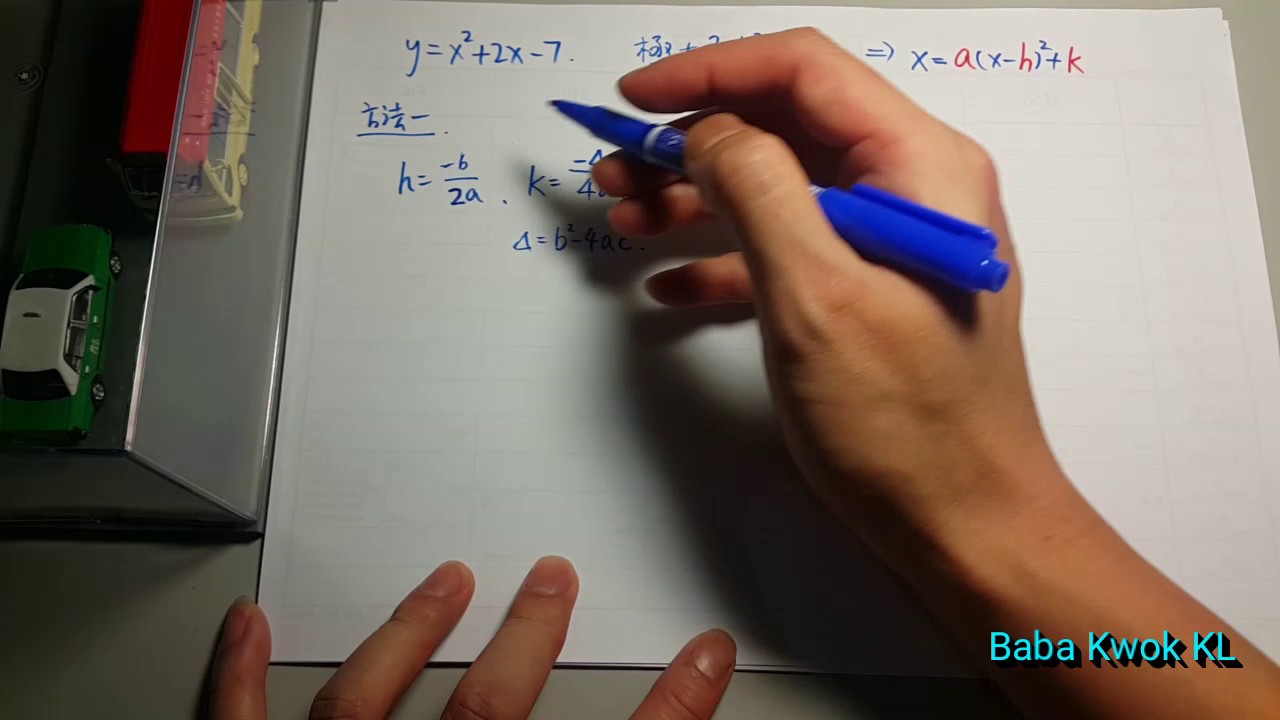 y=x²+2x-7. ⇒ x=a(x-h)²+k
方法一.
h=-b/2a. k=-Δ/4a
Δ=b²-4ac.
Baba Kwok KL